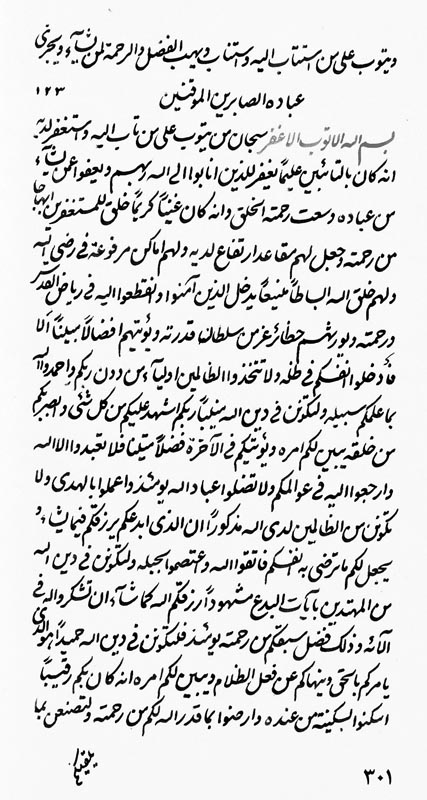 ويتوب على من استتاب اليه واستناب ويهب الفضل والرحمة لمن يشآء ويجزى
عباده الصابرين الموقنين ١٢٣
بسم الله الاتوب الاغفر سبحان من يتوب على من تاب اليه واستغفر لديه
انه كان بالتائبين عليماً يغفر للذين انابوا الى الله ربهم ويعفوا عمن يشآء
من عباده وسعت رحمته الخلق وانه كان غنياً كريماً خلق للمستغفرين ابهاجا
من رحمته وجعل لهم مقاعد ارتفاع لديه ولهم اماكن مرفوعة فى رضى الله
ولهم خلق الله بساطاً منيعاً يدخل الذين آمنوا وانقطعوا اليه فى رياض القدس
ورحمته ويورثهم حظائر عز من سلطان قدرته ويؤتيهم افضالاً مبيناً الا
فأدخلوا انفسكم فى ظله ولا تتخذوا الظالمين اوليآء من دون ربكم واحمدوا الله
بما علمكم سبيله ولتكونن فى دين الله منيباً ربكم اشهد عليكم من كل شئى وابصر بكم
من خلقه يبين لكم امره ويؤتيكم فى الآخرة فضلاً مبينا فلا تعبدوا الا الله
وارجعوا اليه فى عوالمكم ولا تضلوا عباد الله يومئذ واعملوا بالهدى ولا
تكونن من الظالمين لدى الله مذكوراً ان الذى ابدعكم يرزقكم فيما يشآء و
يجعل لكم ما ترضى به انفسكم فاتقوا الله واعتصموا بحبله ولتكونن فى دين الله
من المهتدين بآيات البدع مشهوداً رزقكم الله كما شآء ان تشكروا له فى
آلائه وذلك فضل سبقكم من رحمته يومئذ فلتكونن فى دين الله حميداً هو الذى
يامركم بالتقى وينهاكم عن فعل الظلام ويبين لكم امره انه كان بكم رقيباً
اسكنوا السكينة من عنده وارضوا بما قدر الله لكم من رحمته ولتصنعن بما
يلقيكم
٣٠١